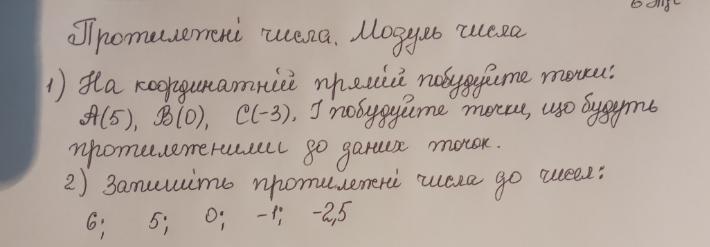 Протилежні числа. Модуль числа
1) На координатній прямій побудуйте точки:
A(5), B(0), C(-3). І побудуйте точки, що будуть
протилежними до даних точок.
2) Запишіть протилежні числа до чисел:
6; 5; 0; -1; -2,5